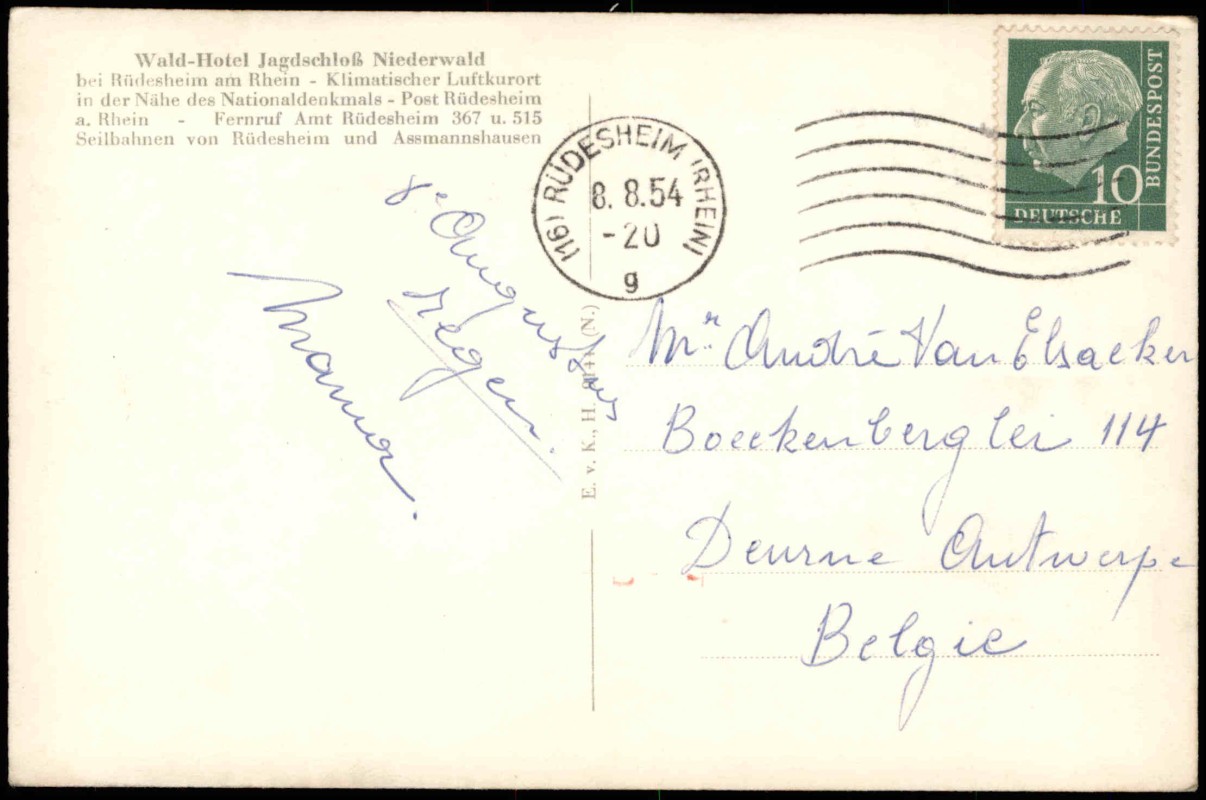 Wald-Hotel Jagdschloß Niederwald
bei Rüdesheim am Rhein - Klimatischer Luftkurort
in der Nähe des Nationaldenkmals - Post Rüdesheim
a. Rhein - Fernruf Amt Rüdesheim 367 u. 515
Seilbahnen von Rüdesheim und Assmannshausen
Augustus
regen.
Mama.
(16) RÜDESHEIM (RHEIN)
8.8.54
-20
g
BUNDESPOST
10
DEUTSCHE
E. v. K., H. (N.)
Mr. André Van Elsacker
Boeckenberglei 114
Deurne Antwerpe
Belgie